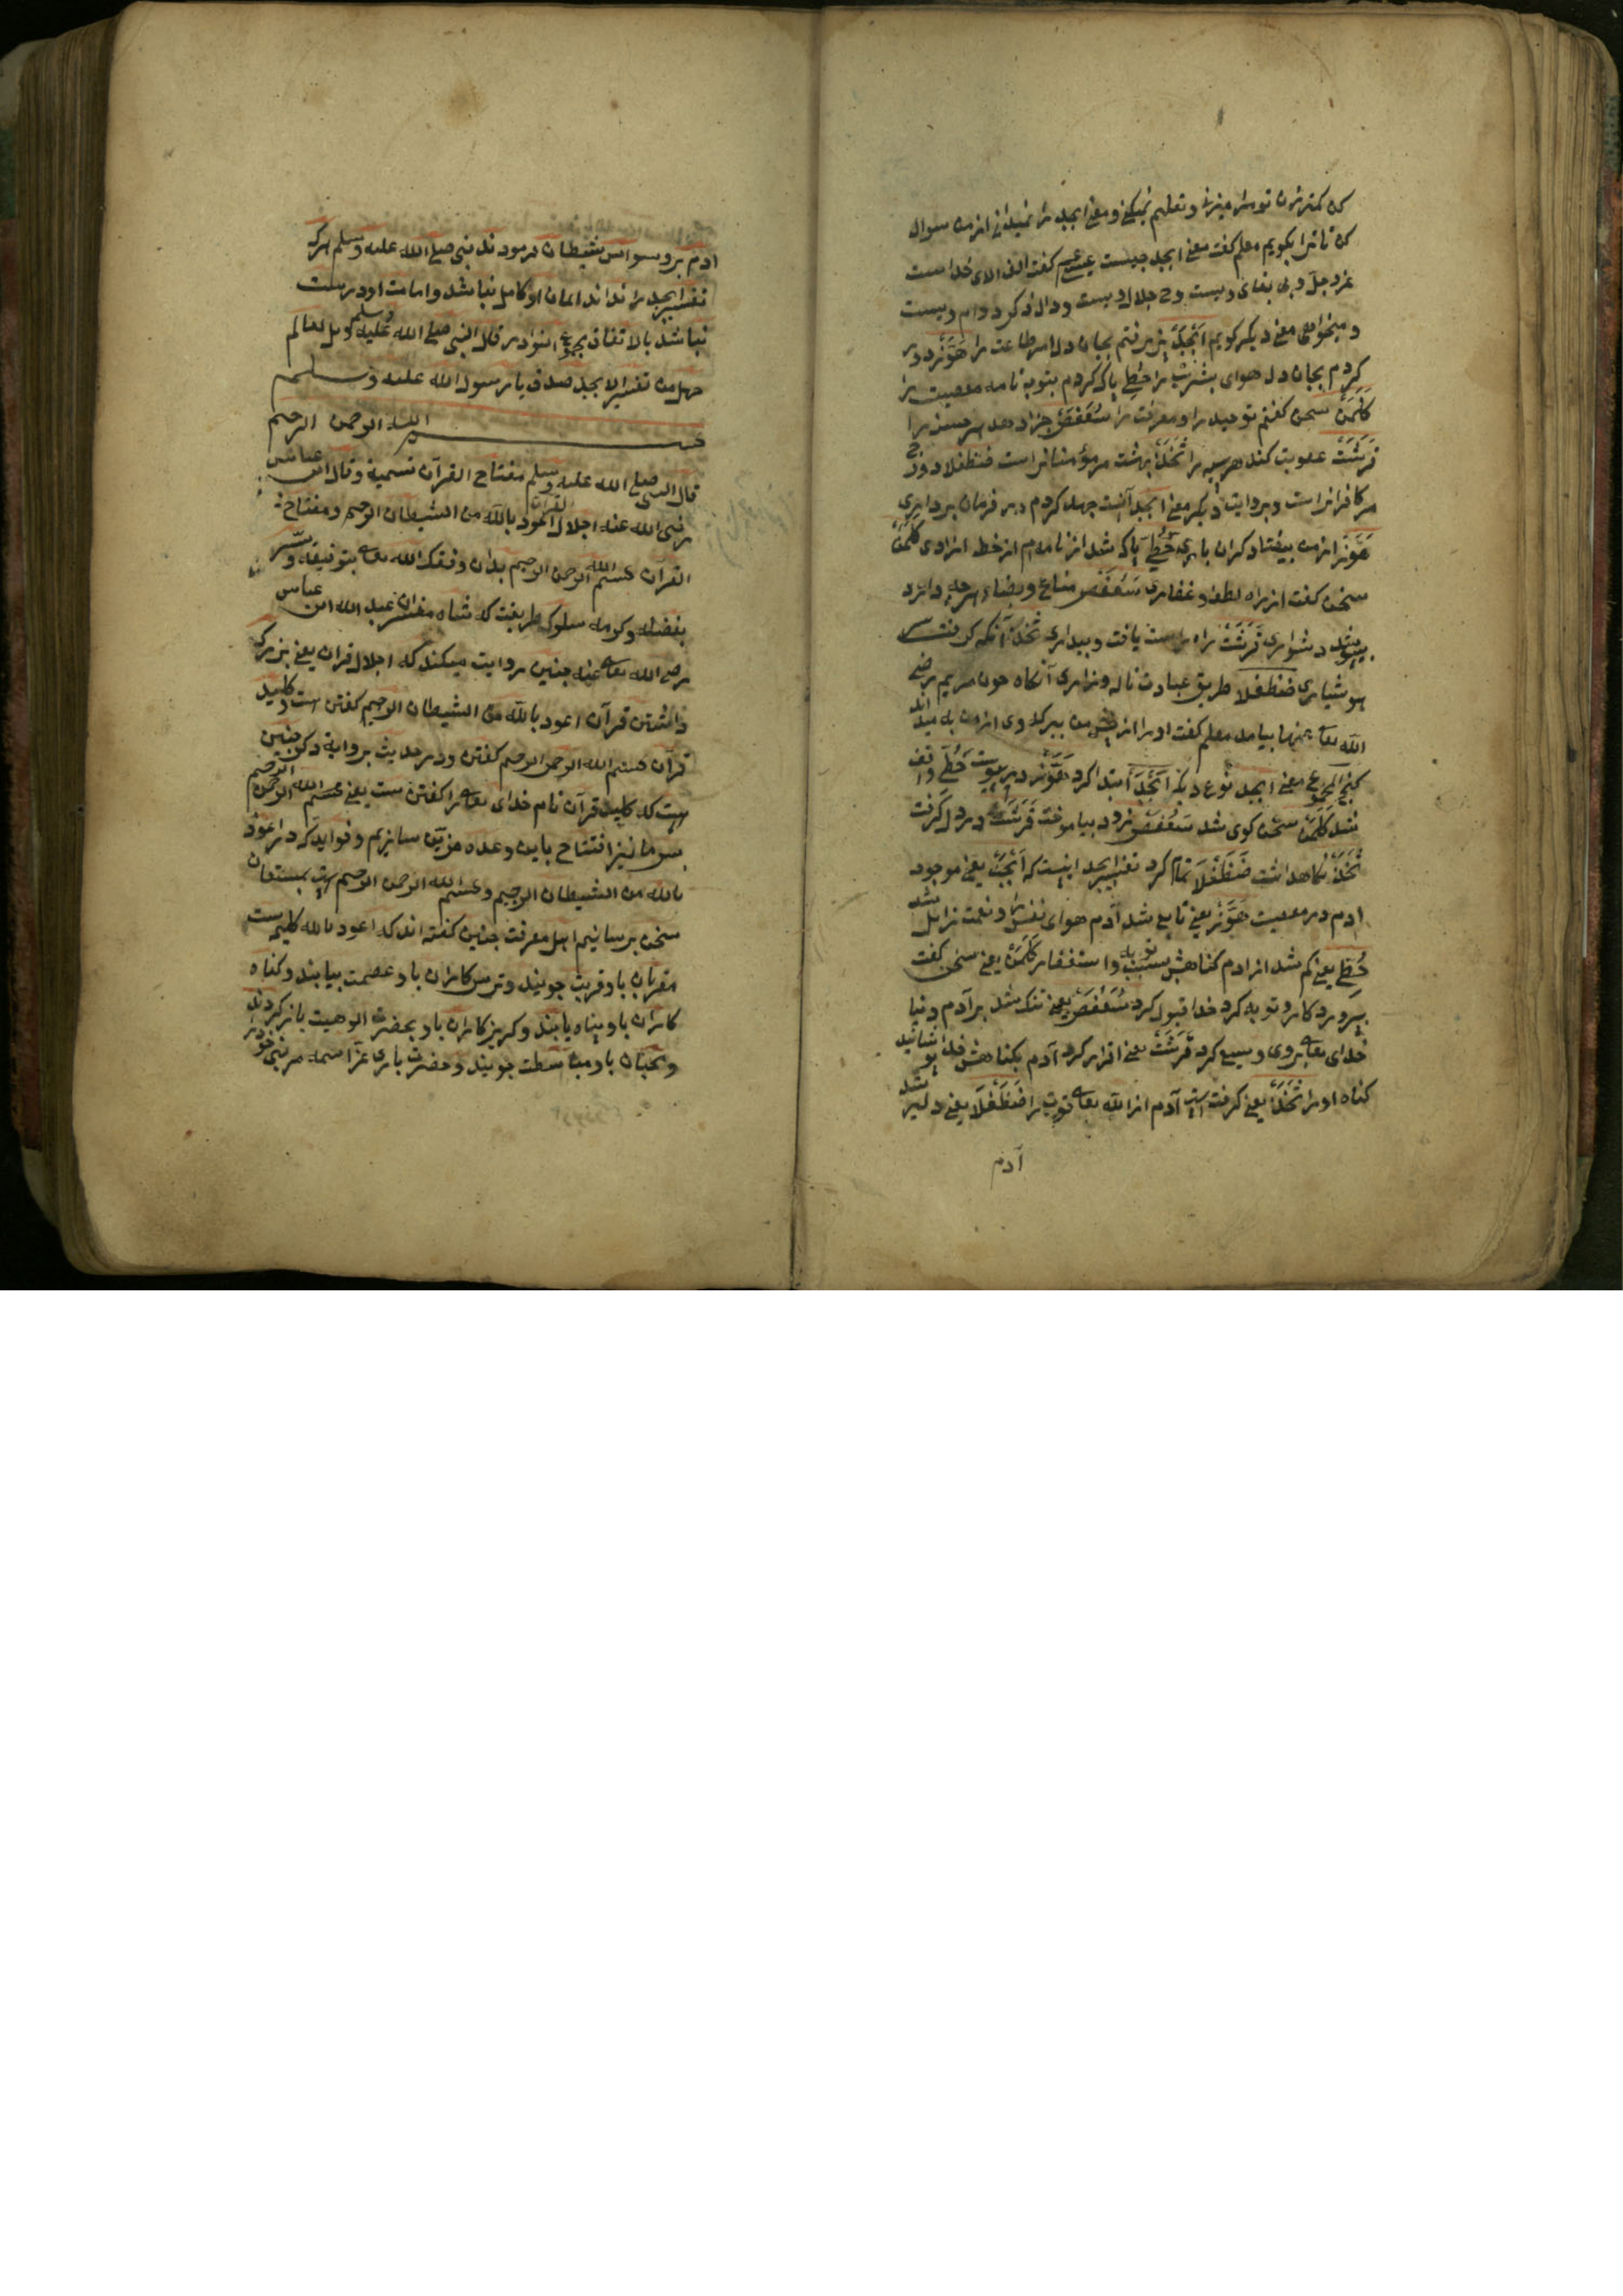 کن کمترین تو مرا میزنی و تعلیم نمیکنی و معنی ابجد را نمیدانی از من سوال
کن تا ترا بکویم معلم کفت معنی ابجد چیست عیسی کفت الف الای خداست
عزوجل و بی بقای ویست و ج جلال ویست و دال ذکر دوام ویست
و میخواهی معنی دیکر کویم اَبْجَدْ پذیرفتم بجان دل امر طاعت را هَوَّزْ دور
کردم بجان دل هوای بشریت را حُطِّی پاک کردم بتوبه نامه معصیت را
کَلَمَنْ سخن کفتم توحید را و معرفت را سَعَفَصْ جزا دهد هر حسن را
قَرَشَتْ عقوبت کند هر سیه را ثَخَذْ بهشت مر مؤمنانراست ضظغلا دوزخ
مر کافرانراست و بروایت دیکر معنی ابجد آنست جهد کردم در فرمان برداری
هَوَّزْ از من بیفتاد کران باری حُطِّی پاک شد از نامه ام از خط ازادی کَلَمَنْ
سخن کفت از راه لطف و غفاری سَعَفَصْ متاع و بضاعه هرچه دارد
بپیوشد دشواری قَرَشَتْ راه راست یافت و بیداری ثَخَذْ آنکه کرفتش
هوشیاری ضظغلا طریق عبادت ناله و زاری آنکاه چون مریم رضی
الله تعا عنها بیامد معلم کفت او را از پیش من ببر که وی از من به میداند
معنی ابجد نوع دیکر اَبْجَدْ ابتدا کرد هَوَّزْ در پیوست حُطِّی واقف
شد کَلَمَنْ سخن کوی شد سَعَفَصْ زود بیاموخت قَرَشَتْ در دل کرفت
ثَخَذْ نکاهداشت ضَظَغْلَا تمام کرد تفسیر ابجد اینست که اَبْجَدْ یعنی موجود
ادم در معصیت هَوَّزْ یعنی تابع شد آدم هوای نفس را و نعمت زایل شد
حُطِّی یعنی کم شد از ادم کناهش بسبب توبه و استغفار کَلَمَنْ یعنی سخن کفت
پرورد کار و توبه کرد خدا قبول کرد سَعَفَصْ یعنی تنک شد بر آدم دنیا
خدای تعا بروی وسیع کرد قَرَشَتْ یعنی اقرار کرد آدم بکناهش خدا پوشانید
کناه او را ثَخَذْ یعنی کرفت است آدم از الله تعا قوت را ضَظَغْلَا یعنی دلیر شد
آدم
ادم بر وسواس شیطان فرمودند نبی صلی الله علیه وسلم هرکه
تفسیر ابجد را نداند ایمان او کامل نباشد و امامت او درست
نباشد بالاتفاق النوادر قال النبی صلی الله علیه وسلم ویل لعالم
جهل من تفسیر الابجد صدق یا رسول الله علیه وسلم
بسم الله الرحمن الرحیم
قال النبی صلی الله علیه وسلم مفتاح القرآن تسمیة وقال ابن عباس
رضی الله عنه اجلال القرآن اعوذ بالله من الشیطان الرجیم ومفتاح
القرآن بسم الله الرحمن الرحیم بدان وفقک الله تعا بتوفیقه ویسّر
بفضله وکرمه سلوک طریقت که شاه مفسران عبد الله ابن عباس
رضی الله تعا عنه چنین روایت میکند که اجلال قران یعنی بزرک
داشتن قرآن اعوذ بالله من الشیطان الرجیم کفتن است و کلید
قرآن بسم الله الرحمن الرحیم کفتن و در حدیث بروایة دکر چنین
است که کلید قرآن نام خدای تعا را کفتن ست یعنی بسم الله الرحمن الرحیم
پس ما نیز افتتاح باین وعده مزین سازیم و فواید که در اعوذ
بالله من الشیطان الرجیم و بسم الله الرحمن الرحیم است بمستمعان
سخن برسانیم اهل معرفت چنین کفته اند که اعوذ بالله کلیمه ست
مقربان باو قربت جویند و ترس کاران باو عصمت بیابند و کناه
کاران باو پناه یابند و کریز کاران باو بحضرت الوهیت باز کردند
و محبان باو مباسطت جویند و حضرت باری عز اسمه مر نبی خود را